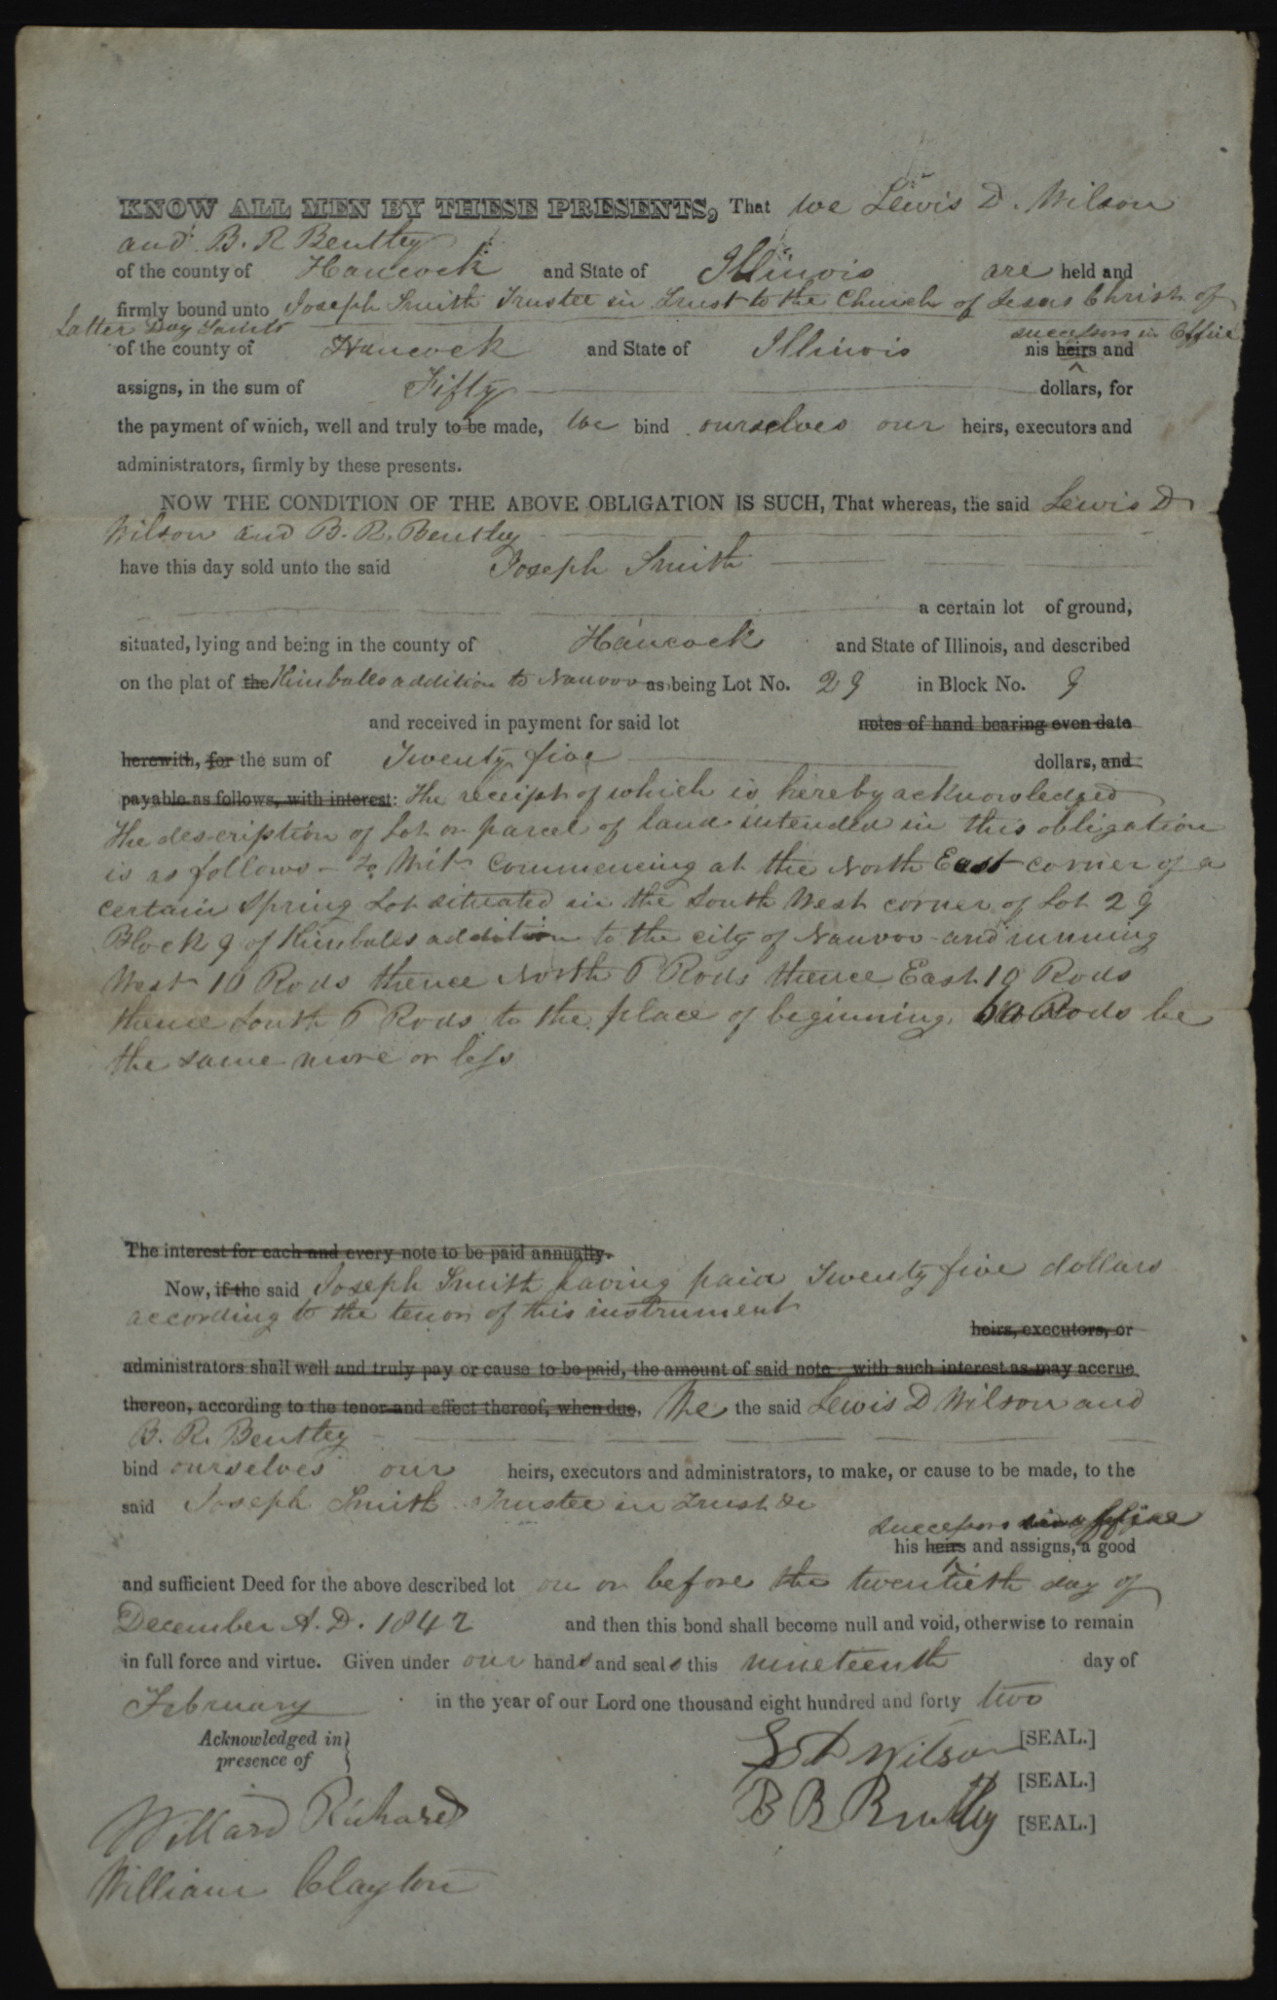 KNOW ALL MEN BY THESE PRESENTS, That we Lewis D. Wilson
and B. R Bentley
of the county of Hancock and State of Illinois are held and
firmly bound unto Joseph Smith Trustee in Trust to the Church of Jesus Christ of
Latter Day Saints
successors in Office
of the county of Hancock and State of Illinois his heirs and
assigns, in the sum of Fifty dollars, for
the payment of which, well and truly to be made, we bind ourselves our heirs, executors and
administrators, firmly by these presents.
NOW THE CONDITION OF THE ABOVE OBLIGATION IS SUCH, That whereas, the said Lewis D
Wilson and B. R. Bentley
have this day sold unto the said Joseph Smith
a certain lot of ground,
situated, lying and being in the county of Hancock and State of Illinois, and described
on the plat of the Kimballs addition to Nauvoo as being Lot No. 29 in Block No. 9
and received in payment for said lot notes of hand bearing even date
herewith, for the sum of Twenty five dollars, and
payable as follows, with interest: the receipt of which is hereby acknowledged
the description of Lot or parcel of land intended in this obligation
is as follows - To Wit Commencing at the North East corner of a
certain Spring Lot situated in the South West corner of Lot 29
Block 9 of Kimballs addition to the city of Nauvoo and running
West 10 Rods thence North 6 Rods thence East 10 Rods
thence South 6 Rods to the place of beginning, 60 Rods be
the same more or less
The interest for each and every note to be paid annually.
Now, if the said Joseph Smith having paid Twenty five dollars
according to the tenor of this instrument
heirs, executors, or
administrators shall well and truly pay or cause to be paid, the amount of said note with such interest as may accrue
thereon, according to the tenor and effect thereof, when due, We the said Lewis D Wilson and
B. R. Bentley
bind ourselves our heirs, executors and administrators, to make, or cause to be made, to the
said Joseph Smith Trustee in Trust &c
successors in office
his heirs and assigns, a good
and sufficient Deed for the above described lot on or before the twentieth day of
December A. D. 1842 and then this bond shall become null and void, otherwise to remain
in full force and virtue. Given under our hands and seals this nineteenth day of
February in the year of our Lord one thousand eight hundred and forty two
Acknowledged in
presence of
L D Wilson [SEAL.]
B R Bentley [SEAL.]
[SEAL.]
Willard Richards
William Clayton